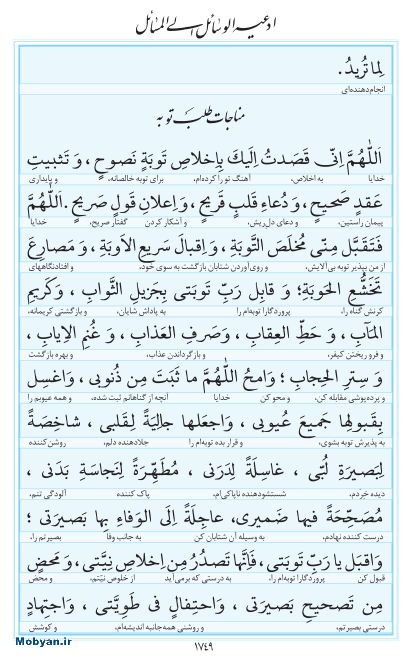 ادعیه الوسائل الی المسائل
لِما تُریدُ.
انجام‌دهنده‌ای
مناجات طلب توبه
اَللّٰهُمَّ اِنّی قَصَدتُ اِلَیكَ بِاِخلاصِ تَوبَةٍ نَصوحٍ ، وَ تَثبیتِ
خدایا به اخلاص، آهنگ تو را کرده‌ام، برای توبه خالصانه، و پایداری
عَقدٍ صَحیحٍ، وَ دُعاءِ قَلبٍ قَریحٍ ، وَ اِعلانِ قَولٍ صَریحٍ . اَللّٰهُمَّ
پیمان راستین، و دعای دل‌ریش، و آشکار کردن گفتار صریح، خدایا
فَتَقَبَّل مِنّی مُخلَصَ التَّوبَةِ ، وَ اِقبالَ سَریعِ الاَوبَةِ ، وَ مَصارِعَ
از من بپذیر توبه بی‌آلایش، و روی‌آوردن شتابان بازگشت به سوی خود، و افتادنگاههای
تَخَشُّعِ الحَوبَةِ؛ وَ قابِل رَبِّ تَوبَتی بِجَزیلِ الثَّوابِ ، وَ كَریمِ
کرنش گناه را، پروردگارا توبه‌ام را به پاداش شایان، و بازگشتی کریمانه،
المَآبِ ، وَ حَطِّ العِقابِ ، وَ صَرفِ العَذابِ ، وَ غُنمِ الاِیابِ ،
و فرو ریختن کیفر، و بازگرداندن عذاب، و بهره بازگشت
وَ سِترِ الحِجابِ ؛ وَ امحُ اللّٰهُمَّ ما ثَبَتَ مِن ذُنوبی ، وَ اغسِل
و پرده‌پوشی مقابله کن، و محو کن خدایا آنچه از گناهانم ثبت شده، و همه عیوبم را
بِقَبولِها جَمیعَ عُیوبی ، وَ اجعَلها جالِیَةً لِقَلبی ، شاخِصَةً
به پذیرش توبه بشوی، و قرار بده توبه‌ام را جلادهنده دلم، روشن‌کننده
لِبَصیرَةِ لُبّی ، غاسِلَةً لِدَرَنی ، مُطَهِّرَةً لِنَجاسَةِ بَدَنی ،
دیده خردم، شستشودهنده ناپاکی‌ام، پاک کننده آلودگی تنم،
مُصَحِّحَةً فیها ضَمیری، عاجِلَةً اِلَی الوَفاءِ بِها بَصیرَتی ؛
درست کننده نهادم، به وسیله آن شتابان کن به جانب وفا بصیرتم را،
وَ اقبَل یا رَبِّ تَوبَتی، فَاِنَّها تَصدُرُ مِن اِخلاصِ نِیَّتی، وَ مَحضٍ
قبول کن پروردگارا توبه‌ام را، به درستی که برمی‌آید از خلوص نیّتم، و محض
مِن تَصحیحِ بَصیرَتی ، وَ احتِفالٍ فی طَوِیَّتی ، وَ اجتِهادٍ
درستی بصیرتم، و روشنی همه‌جانبه اندیشه‌ام، و کوشش
Mobyan.ir
۱۷۴۹